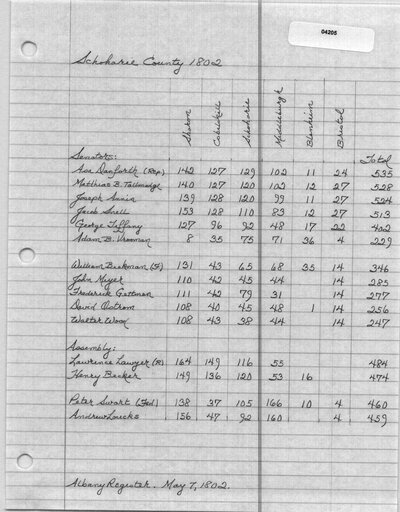 04205
Schoharie County 1802
Sharon Cobleskill Schoharie Middleburgh Blenheim Bristol
Senators: Total
Asa Danforth (Rep) 142 127 129 102 11 24 535
Matthias B. Tallmadge 140 127 120 102 12 27 528
Joseph Annin 139 128 120 99 11 27 524
Jacob Snell 153 128 110 83 12 27 513
George Tiffany 127 96 92 48 17 22 402
Adam B. Vrooman 8 35 75 71 36 4 229
William Beekman (F) 131 43 65 68 35 14 346
John Meyer 110 42 45 44 14 285
Frederick Gettman 111 42 79 31 14 277
David Ostrom 108 40 45 48 1 14 256
Walter Wood 108 43 38 44 14 247
Assembly:
Lawrence Lawyer (R) 164 149 116 55 484
Henry Becker 149 136 120 53 16 474
Peter Swart (Fed) 138 37 105 166 10 4 460
Andrew Loucks 156 47 92 160 4 459
Albany Register. May 7, 1802.